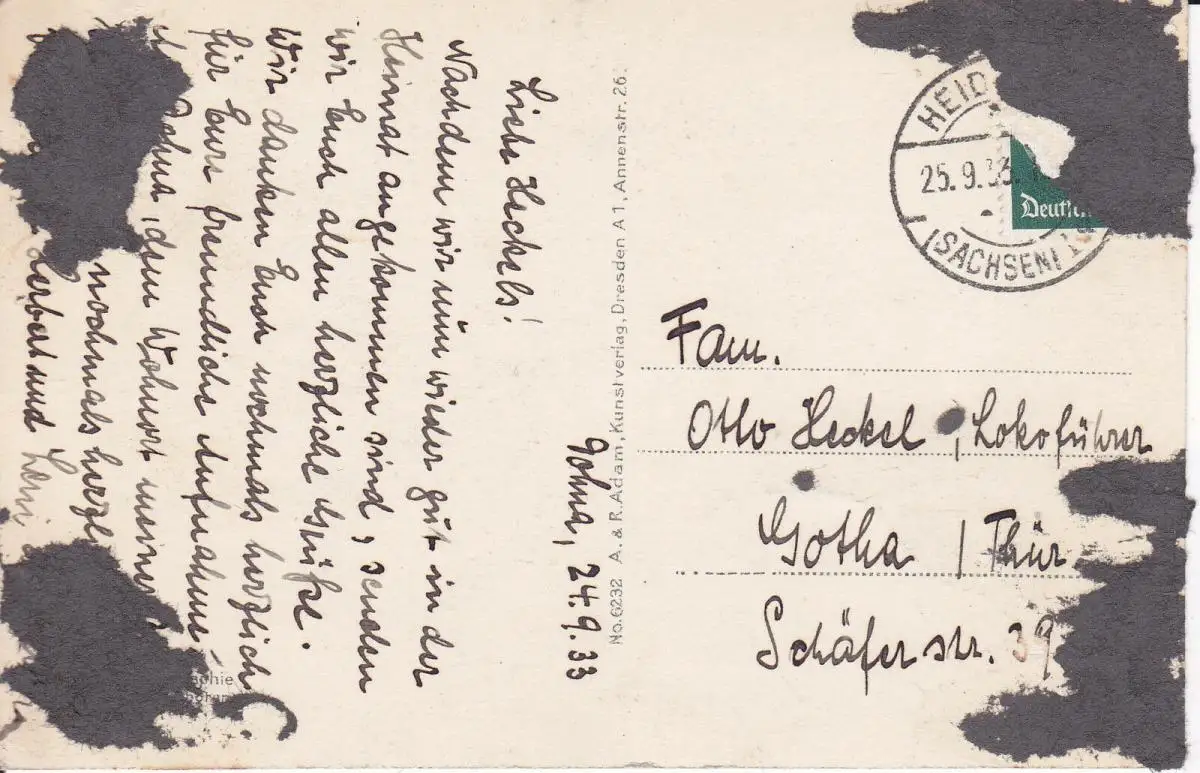 Dohna, 24.9.33
Liebe Heckels!
Nachdem wir nun wieder gut in der
Heimat angekommen sind, senden
wir Euch allen herzliche Grüße.
Wir danken Euch nochmals herzlich
für Eure freundliche Aufnahme.
Dohna, dem Wohnort
nochmals
Herbert und
No. 6232 A. & R. Adam, Kunstverlag, Dresden A 1, Annenstr. 26.
HEID
25.9.33.
(SACHSEN)
Deutsch
Fam.
Otto Heckel, Lokoführer
Gotha / Thür.
Schäferstr. 39